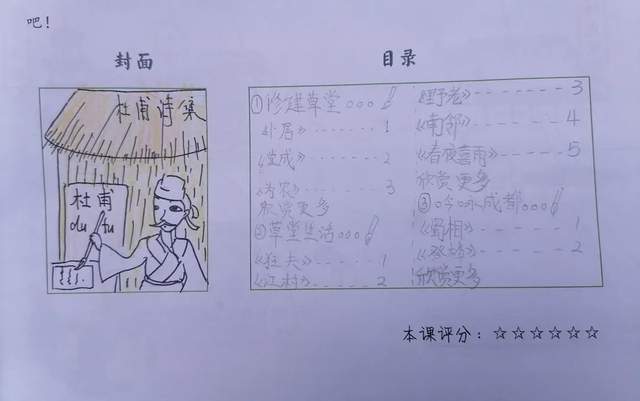 吧！
封面
目录
杜甫诗集
杜甫
du fu
①修建草堂。。。
《卜居》······· 1
《堂成》······· 2
《为农》······· 3
欣赏更多
②草堂生活。。。
《狂夫》······· 1
《江村》······· 2
《野老》------- 3
《南邻》------- 4
《春夜喜雨》----- 5
欣赏更多
③吟咏成都。。。
《蜀相》------- 1
------- 2
欣赏更多
本课评分：☆☆☆☆☆☆